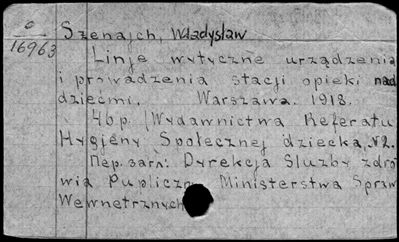 o
16963
Szenajch, Władysław
Linje wytyczne urządzenia
i prowadzenia stacji opieki nad
dziećmi. Warszawa. 1918.
46 p. (Wydawnictwa Referatu
Hygjeny Społecznej dziecka, №2.
Пер. загл.: Dyrekcja Służby zdro
wia Publiczn Ministerstwa Spraw
Wewnetrznych